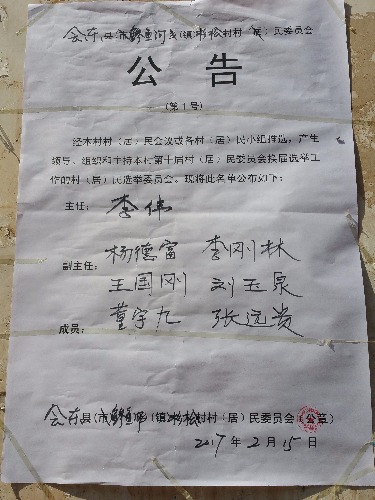 会东县(市)鲹鱼河乡(镇)彬松村村(居)民委员会
公 告
(第1号)
经本村村(居)民会议或各村(居)民小组推选,产生
领导、组织和主持本村第十届村(居)民委员会换届选举工
作的村(居)民选举委员会。现将此名单公布如下:
主任: 李伟
杨德富 李刚林
副主任:
王国刚 刘玉泉
董宇九 张远贵
成员:
会东县(市)鲹鱼河(镇)彬松村村(居)民委员会(公章)
2017年2月15日